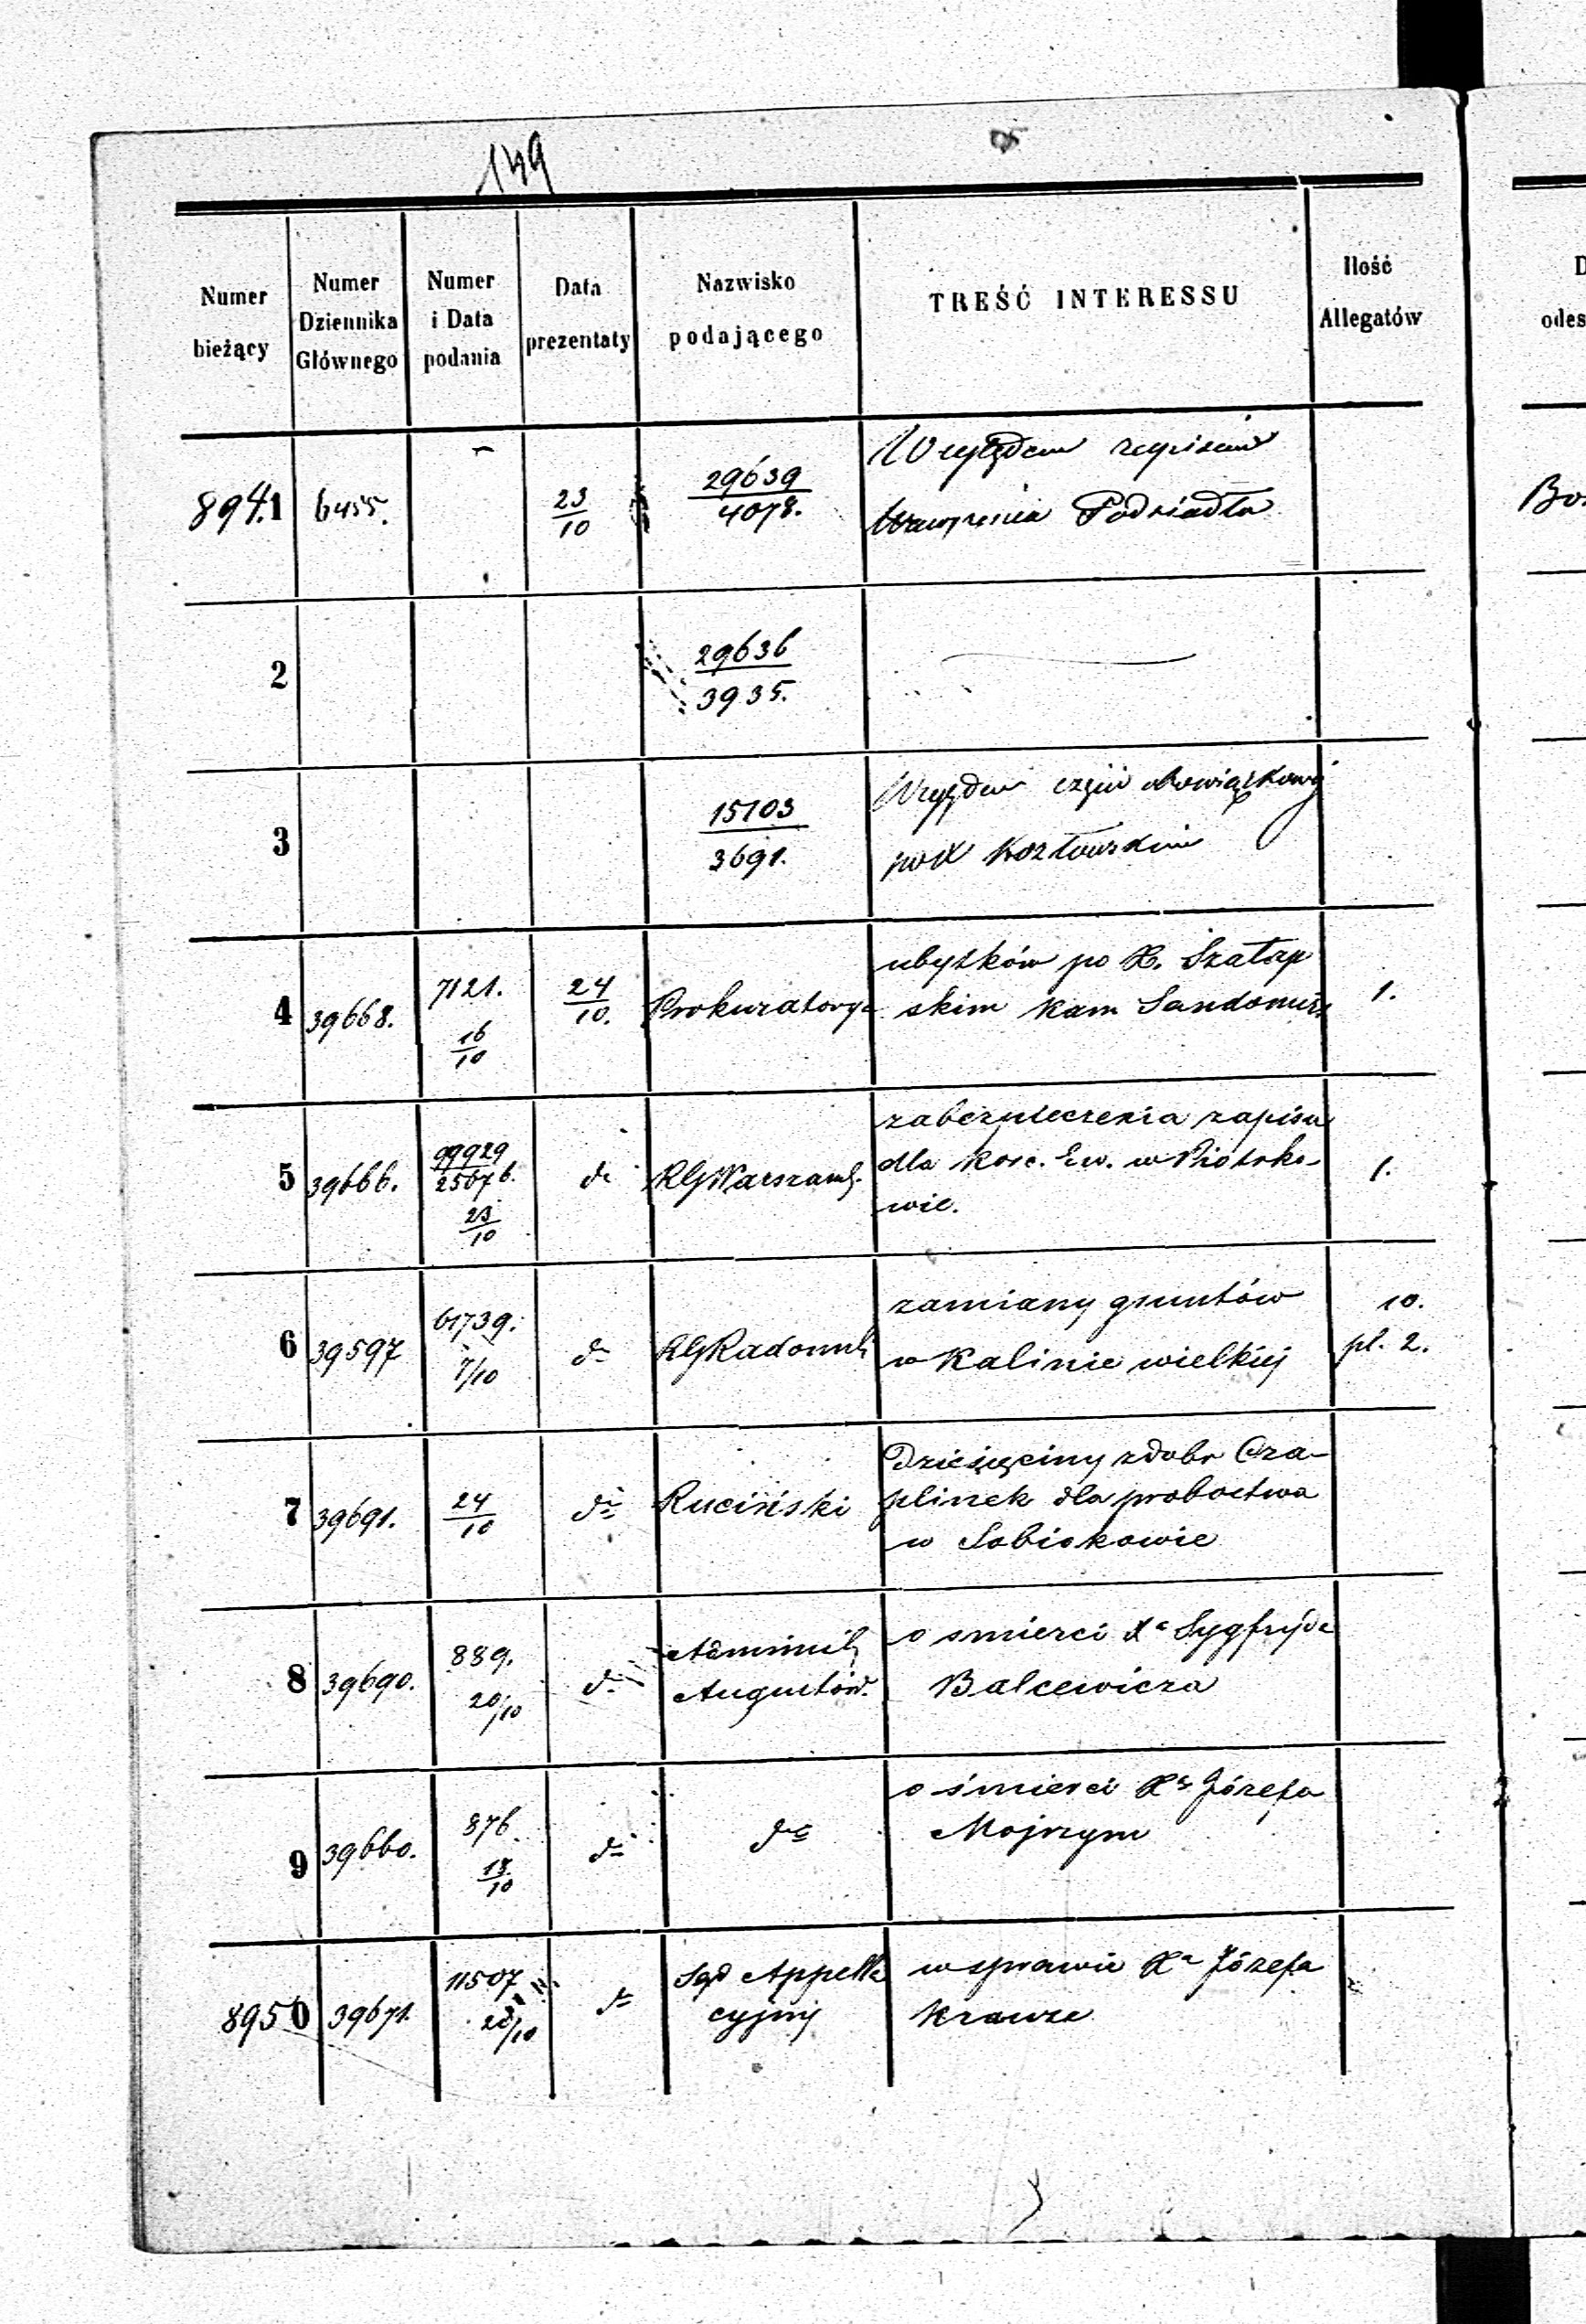 149
Numer bieżący
Numer Dziennika Głównego
Numer i Data podania
Data prezentaty
Nazwisko podającego
TREŚĆ INTERESSU
Ilość Allegatów
8941 6455. 23/10 29639/4078. Względem
Podsiadła
2 29636/3935.
3 15103/3691. Względem części obowiązkowej
po X Kozłowskim
4 39668. 7121. 16/10 24/10. Prokuratorya ubytków po X. Szałap
skim Kan Sandomirs 1.
5 39666. 99929/25076. 23/10 do RGWarszaws. zabezpieczenia zapisu
dla Kosc. Ew. w Piotrko-
wie. 1.
6 39597 61739. 7/10 do RGRadoms zamiany gruntów
w Kalinie wielkiej 10.
pl. 2.
7 39691. 24/10 do Ruciński Dziesięciny z dóbr Cza-
plinek dla probostwa
w Sobikowie
8 39690. 889. 20/10 do Admini
Augustow. o smierci Xa Sygfryda
Balcewicza
9 39660. 876. 18/10 do do o śmierci Xa Józefa
Mojrzym
8950 39671. 11507 20/10 do Sąd Appella
cyjny w sprawie Xa Józefa
Krauze
D
odes
Bo